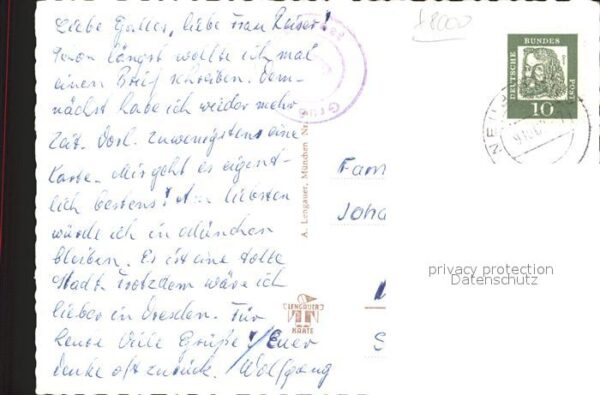 Liebe Galler, liebe Frau Kaiser!
Schon längst wollte ich mal
einen Brief schreiben. Dem-
nächst habe ich wieder mehr
Zeit. Dort. zuwenigstens eine
Karte. Mir geht es eigent-
lich bestens! Am liebsten
würde ich in München
bleiben. Es ist eine tolle
Stadt. Trotzdem wäre ich
lieber in Dresden. Für
heute viele Grüße v/Euer
Denke oft zurück. Wolfgang
A. Lengauer, München
LENGAUER
KARTE
Fam
Joha
£8000
DEUTSCHE BUNDESPOST
10
privacy protection
Datenschutz